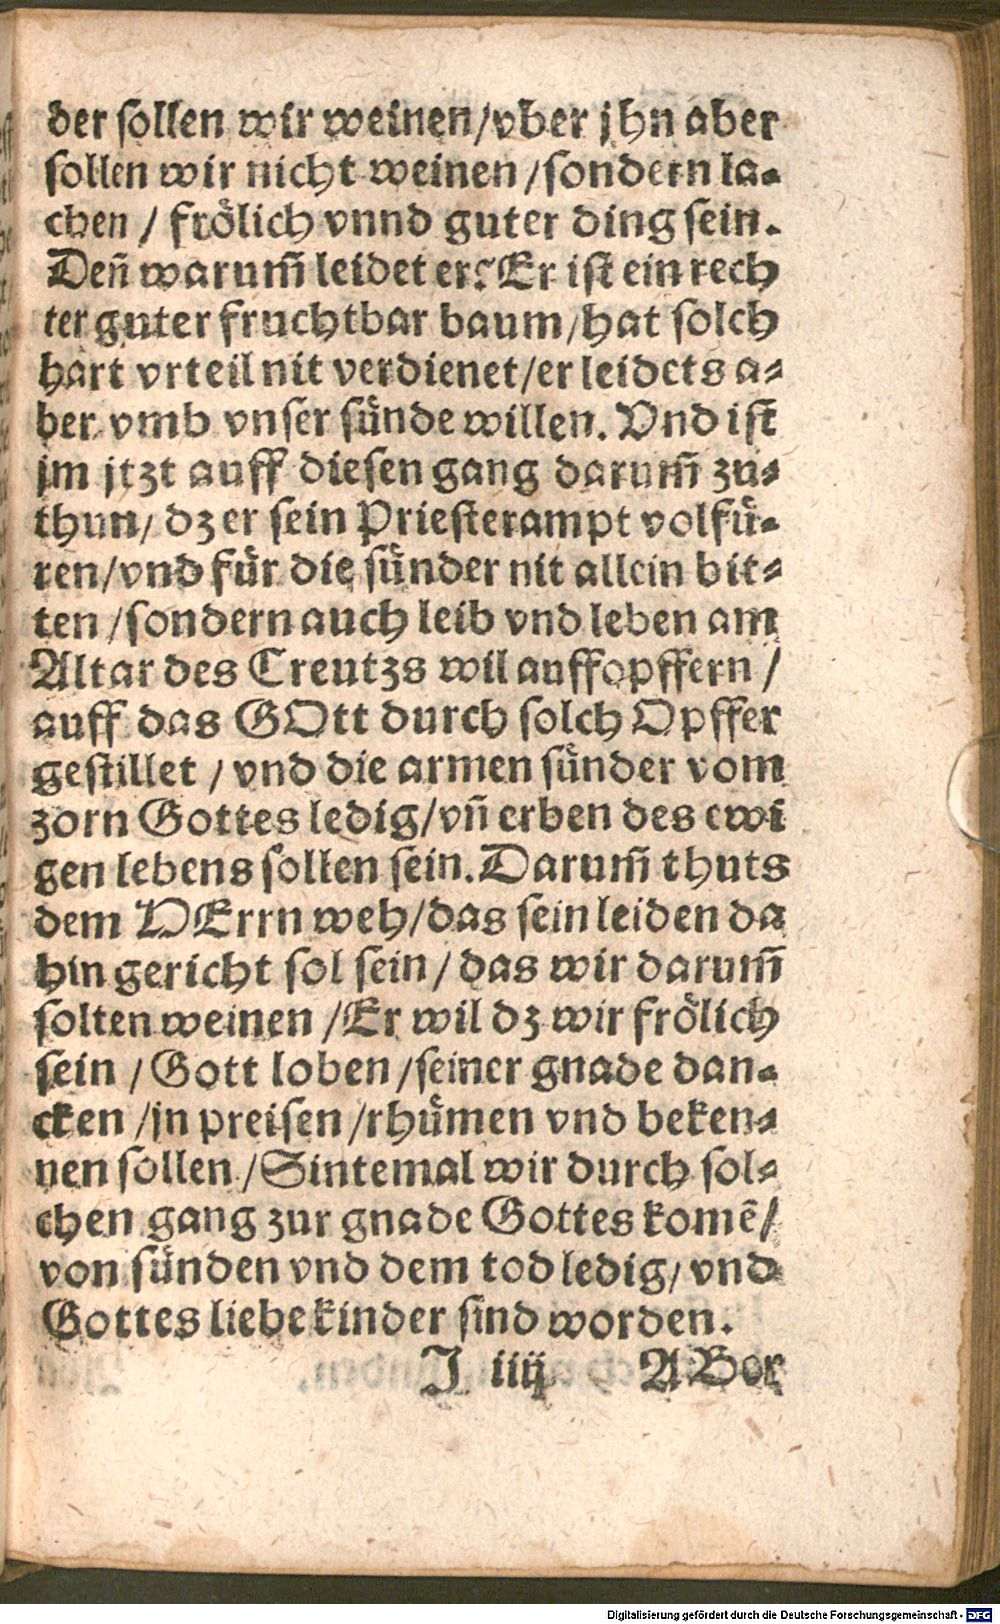 der sollen wir weinen/vber jhn aber
sollen wir nicht weinen/sondern la-
chen/ frölich vnnd guter ding sein.
Deñ warum̃ leidet er? Er ist ein rech
ter guter fruchtbar baum/hat solch
hart vrteil nit verdienet/er leidets a-
ber vmb vnser sünde willen. Vnd ist
jm jtzt auff diesen gang darum̃ zu-
thun/ dz er sein Priesterampt volfü-
ren/vnd für die sünder nit allein bit-
ten/sondern auch leib vnd leben am
Altar des Creutzs wil auffopffern/
auff das GOtt durch solch Opffer
gestillet/ vnd die armen sünder vom
zorn Gottes ledig/vñ erben des ewi
gen lebens sollen sein. Darum̃ thuts
dem HErrn weh/das sein leiden da
hin gericht sol sein/ das wir darum̃
solten weinen/Er wil dz wir frölich
sein/Gott loben/seiner gnade dan-
cken/jn preisen/rhümen vnd beken-
nen sollen/Sintemal wir durch sol-
chen gang zur gnade Gottes komẽ/
von sünden vnd dem tod ledig/ vnd
Gottes liebe kinder sind worden.
J iiij ABer
Digitalisierung gefördert durch die Deutsche Forschungsgemeinschaft - DFG